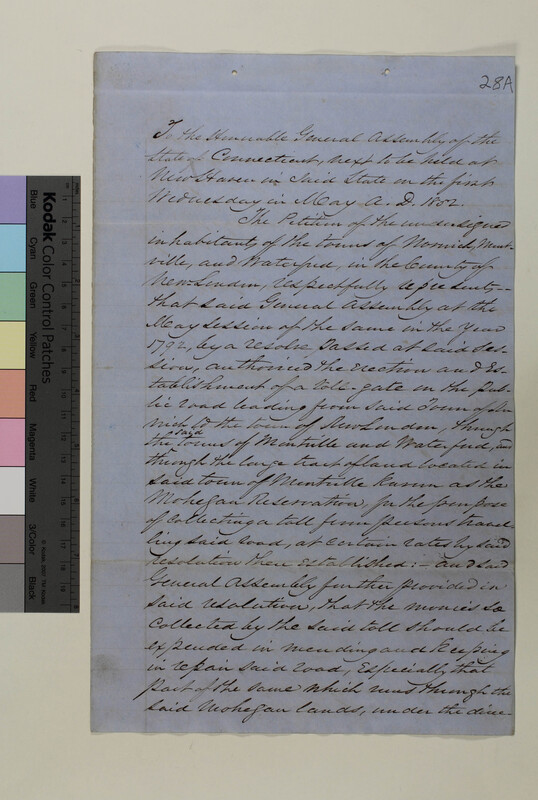 28A
To the Honorable General Assembly of the
State of Connecticut, next to be held at
New Haven in Said State on the first
Wednesday in May A. D. 1852.
The Petition of the undersigned
inhabitants of the towns of Norwich, Mont-
ville, and Waterford, in the County of
New London, respectfully represents—
that said General Assembly at the
May session of the same in the year
1792, by a resolve passed at said ses-
sion, authorised the erection and es-
tablishment of a toll-gate in the pub-
lic road leading from said Town of Nor-
wich to the town of New London, through
the said towns of Montville and Waterford, and
through the large tract of land located in
said town of Montville known as the
Mohegan Reservation, for the purpose
of collecting a toll from persons travel-
ling said road, at certain rates by said
resolution then established:— and said
General Assembly further provided in
said resolution, that the monies so
collected by the said toll should be
expended in mending and keeping
in repair said road, especially that
part of the same which runs through the
said Mohegan lands, under the direc-
Kodak Color Control Patches
Blue
Cyan
Green
Yellow
Red
Magenta
White
3/Color
Black